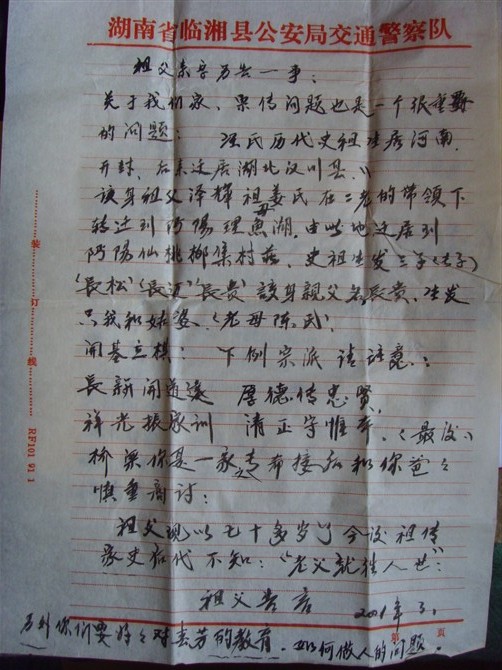 湖南省临湘县公安局交通警察队
祖父亲言另告一事：
关于我们家、宗传问题也是一个很重要
的问题： 汪氏历代史祖生居河南、
开封、后来迁居湖北汉川县、
該身祖父泽辉祖母姜氏在二老的带领下
转迁到沔陽理魚湖、由此地迁居到
沔陽仙桃榔集村莊、史祖生发三子(長子)
"長松""長近""長贵"該身親父名長贵、生发
只我和妹婆、(老母陈氏)
開基立棋： 下例宗派请注意：
長新開道遠 厚德传忠賢、
祥光振家训 清正守惟本、(最後)
你是一家 希接后和你爸々
慎重商讨：
祖父现以七十多岁了 今设祖传
家史后代不知："老父就往人世"：
祖父告言 2001年3.
另外你们要好々对 芳的教育、如何做人的问题.
第 页
装 订 线
RF101 91 1